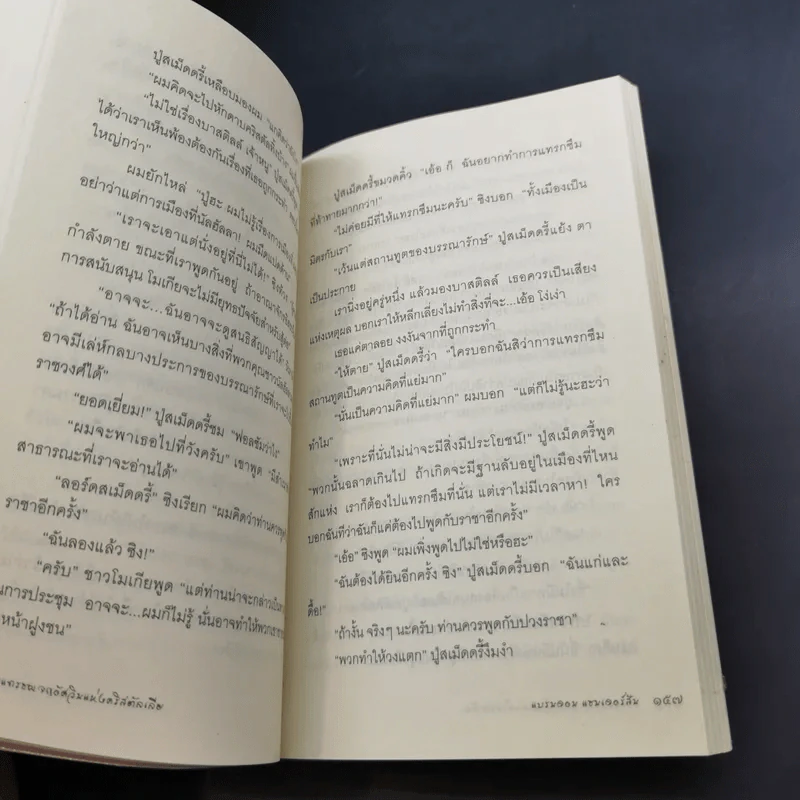 ปู่สเม็ดดรี้เหลือบมองผม
"ผมคิดจะไปหักดาบคริสตัล
"ไม่ใช่เรื่องบาสติลล์ เจ้าหนู" ปู่สเม็ดดรี้
ได้ว่าเราเห็นพ้องต้องกันเรื่องที่เธอถูกกระทำ
ใหญ่กว่า"
ผมยักไหล่ "ปู่ฮะ ผมไม่รู้เรื่องการเมือง
อย่าว่าแต่การเมืองที่นัลฮัลลา! ผมมืดแปดด้าน"
"เราจะเอาแต่นั่งอยู่ที่นี่ไม่ได้!" ซิง
กำลังตาย ขณะที่เราพูดกันอยู่ ถ้าอาณาจักร
การสนับสนุน โมเกียจะไม่มียุทธปัจจัยสำหรับสู้
"อาจจะ...ฉันอาจจะดูสนธิสัญญาได้!
"ถ้าได้อ่าน ฉันอาจเห็นบางสิ่งที่พวกคุณชาวนัลฮัลลา
อาจมีเล่ห์กลบางประการของบรรณารักษ์ที่เรา
ราชวงศ์ได้"
"ยอดเยี่ยม!" ปู่สเม็ดดรี้ชม "ฟอลซัมว่าไง"
"ผมจะพาเธอไปที่วังครับ" เขาพูด
สาธารณะที่เราจะอ่านได้"
"ลอร์ดสเม็ดดรี้" ซิงเรียก "ผมคิดว่าท่านควร
ราชาอีกครั้ง"
"ฉันลองแล้ว ซิง!"
"ครับ" ชาวโมเกียพูด "แต่ท่านน่าจะกล่าว
นการประชุม อาจจะ...ผมก็ไม่รู้ นั่นอาจทำให้พวก
หน้าฝูงชน"
แห่งคริสตัลเลีย
ปู่สเม็ดดรี้ขมวดคิ้ว "เอ้อ ก็ ฉันอยากทำการแทรกซึม
ที่ท้าทายมากกว่า!"
"ไม่ค่อยมีที่ให้แทรกซึมนะครับ" ซิงบอก "ทั้งเมืองเป็น
มิตรกับเรา"
"เว้นแต่สถานทูตของบรรณารักษ์" ปู่สเม็ดดรี้แย้ง ตา
เป็นประกาย
เรานิ่งอยู่ครู่หนึ่ง แล้วมองบาสติลล์ เธอควรเป็นเสียง
แห่งเหตุผล บอกเราให้หลีกเลี่ยงไม่ทำสิ่งที่จะ...เอ้อ โง่เง่า
เธอแค่ตาลอย งงงันจากที่ถูกกระทำ
"ให้ตาย" ปู่สเม็ดดรี้ว่า "ใครบอกฉันสิว่าการแทรกซึม
สถานทูตเป็นความคิดที่แย่มาก"
"นั่นเป็นความคิดที่แย่มาก" ผมบอก "แต่ก็ไม่รู้นะฮะว่า
ทำไม"
"เพราะที่นั่นไม่น่าจะมีสิ่งมีประโยชน์!" ปู่สเม็ดดรี้พูด
"พวกนั้นฉลาดเกินไป ถ้าเกิดจะมีฐานลับอยู่ในเมืองที่ไหน
สักแห่ง เราก็ต้องไปแทรกซึมที่นั่น แต่เราไม่มีเวลาหา! ใคร
บอกฉันทีว่าฉันก็แค่ต้องไปพูดกับราชาอีกครั้ง"
"เอ้อ" ซิงพูด "ผมเพิ่งพูดไปไม่ใช่หรือฮะ"
"ฉันต้องได้ยินอีกครั้ง ซิง" ปู่สเม็ดดรี้บอก "ฉันแก่และ
ดื้อ!"
"ถ้างั้น จริงๆ นะครับ ท่านควรพูดกับปวงราชา"
"พวกทำให้วงแตก" ปู่สเม็ดดรี้งึมงำ
แบรนดอน แซนเดอร์สัน ๑๕๗